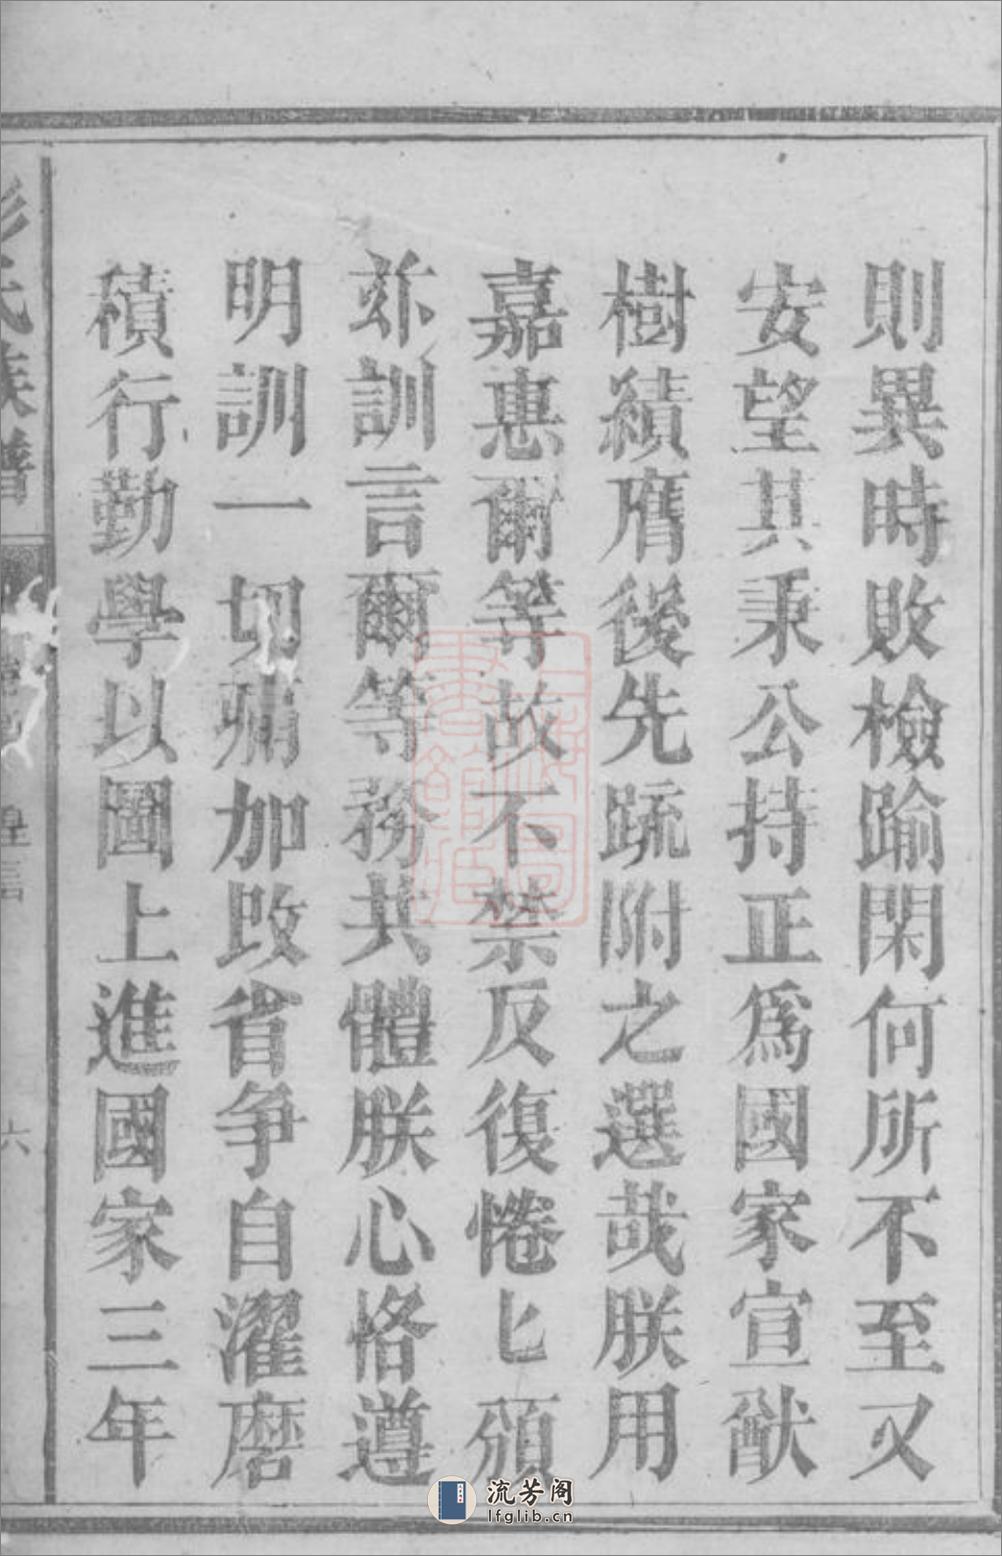 則異時敗檢踰閑何所不至又
安望其秉公持正爲國家宣猷
樹績膺後先䟽附之選哉朕用
嘉惠爾等故不禁反復惓匕頒
茲訓言爾等務共體朕心恪遵
明訓一切痛加改省争自濯磨
積行勤學以圖上進國家三年
彭氏族譜
六
流芳阁
lfglib.cn